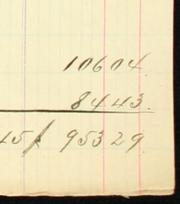 10604.
8443.
45/ 95329